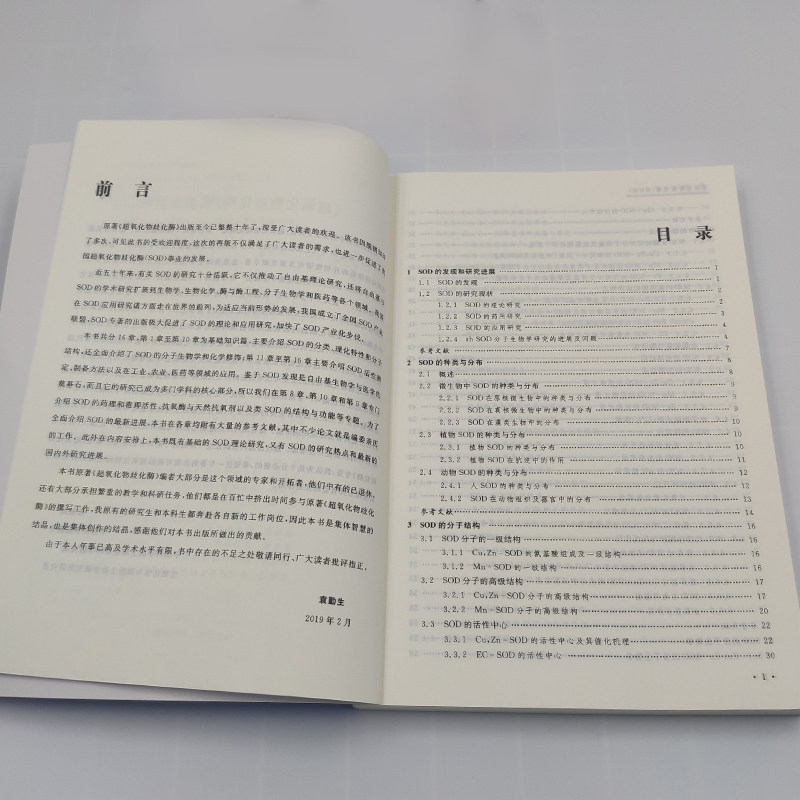 前 言
原著《超氧化物歧化酶》出版至今已整整十年了，深受广大读者的欢迎。该书因
了多次，可见此书的受欢迎程度，这次的再版不仅满足了广大读者的需求，也进一步促进了我
国超氧化物歧化酶(SOD)事业的发展。
近五十年来，有关 SOD 的研究十分活跃，它不仅推动了自由基理论研究，还将自由基与
SOD 的学术研究扩展到生物学、生物化学、酶与酶工程、分子生物学和医药等各个领域。我国
在 SOD 应用研究诸方面走在世界的前列，为适应当前形势的发展，我国成立了全国 SOD 产业
联盟，SOD 专著的出版极大促进了 SOD 的理论和应用研究，加快了 SOD 产业化步伐。
本书共分 16 章，第 1 章至第 10 章为基础知识篇，主要介绍 SOD 的分类、理化特性和分子
结构，还全面介绍了 SOD 的分子生物学和化学修饰；第 11 章至第 16 章主要介绍 SOD 活性测
定、制备方法以及在工业、农业、医药等领域的应用。鉴于 SOD 发现是自由基生物学与医学的
奠基石，而且它的研究已成为多门学科的核心部分，所以我们在第 8 章、第 10 章和第 9 章专门
介绍 SOD 的药理和毒理活性、抗氧酶与天然抗氧剂以及类 SOD 的结构与功能等专题。为了
全面介绍 SOD 的最新进展，本书在各章均附有大量的参考文献，其中不少论文就是编委亲历
的工作。此外在内容安排上，本书既有基础的 SOD 理论研究，又有 SOD 的研究热点和最新的
国内外研究进展。
本书原著《超氧化物歧化酶》编者大部分是这个领域的专家和开拓者，他们中有的已退休，
还有大部分承担繁重的教学和科研任务，他们都是在百忙中挤出时间参与原著《超氧化物歧化
酶》的撰写工作，我原有的研究生和本科生都奔赴各自新的工作岗位，因此本书是集体智慧的
结晶，也是集体创作的结晶，感谢他们对本书出版所做出的贡献。
由于本人年事已高及学术水平有限，书中存在的不足之处敬请同行、广大读者批评指正。
袁勤生
2019 年 2 月
目 录
1 SOD 的发现和研究进展 1
1.1 SOD 的发现 1
1.2 SOD 的研究现状 2
1.2.1 SOD 的理论研究 2
1.2.2 SOD 的药用研究 2
1.2.3 SOD 的应用研究 4
1.2.4 rhSOD 分子生物学研究的进展及问题 5
参考文献 6
2 SOD 的种类与分布 8
2.1 概述 8
2.2 微生物中 SOD 的种类与分布 9
2.2.1 SOD 在原核微生物中的种类与分布 9
2.2.2 SOD 在真核微生物中的种类与分布 9
2.2.3 SOD 在藻类生物中的分布 10
2.3 植物 SOD 的种类与分布 10
2.3.1 植物 SOD 的种类与分布 10
2.3.2 植物 SOD 在抗逆中的作用 11
2.4 动物 SOD 的种类与分布 12
2.4.1 人 SOD 的种类与分布 12
2.4.2 SOD 在动物组织及器官中的分布 13
参考文献 14
3 SOD 的分子结构 16
3.1 SOD 分子的一级结构 16
3.1.1 Cu,Zn-SOD 的氨基酸组成及一级结构 16
3.1.2 Mn-SOD 的一级结构 16
3.2 SOD 分子的高级结构 17
3.2.1 Cu,Zn-SOD 分子的高级结构 17
3.2.2 Mn-SOD 分子的高级结构 20
3.3 SOD 的活性中心 22
3.3.1 Cu,Zn-SOD 的活性中心及其催化机理 22
3.3.2 EC-SOD 的活性中心 30
· 1 ·